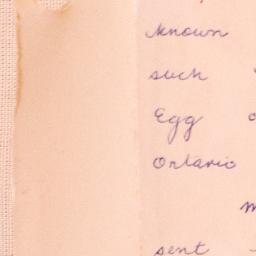 known
such
Egg
Ontario
sent